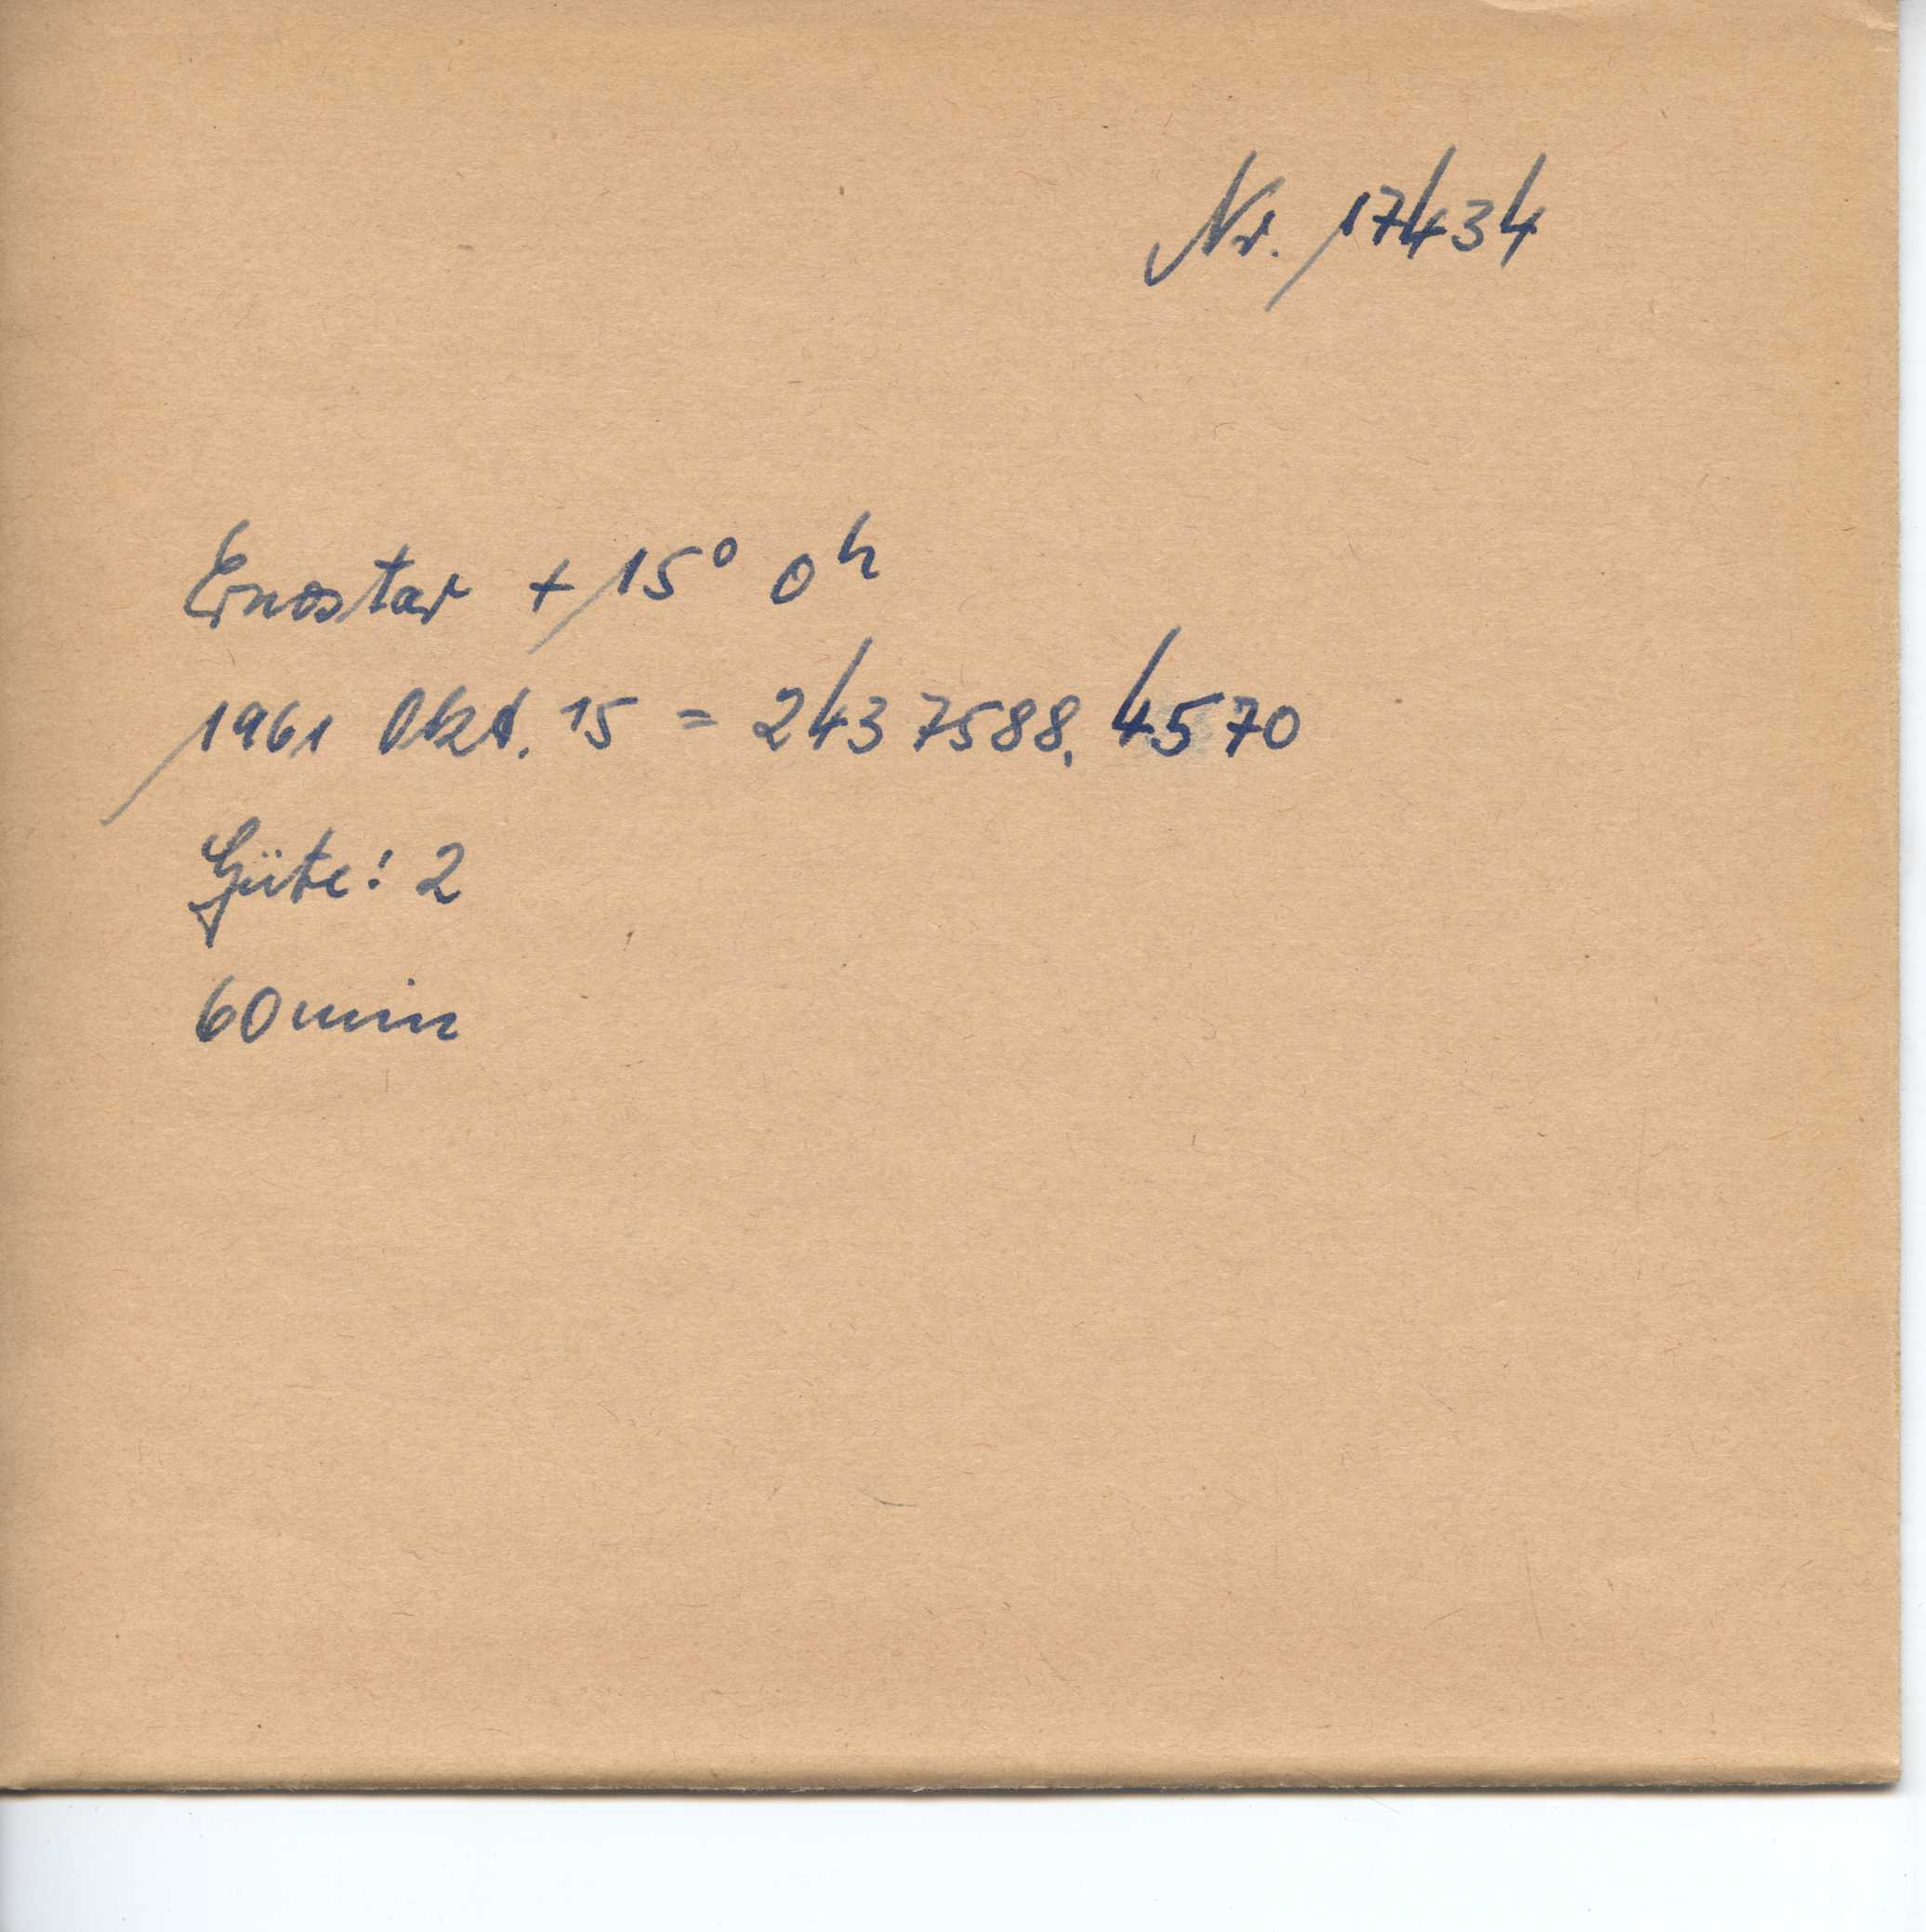 Nr. 17434
Ernostar +15° 0ʰ
1961 Okt. 15 = 243 7588.4570
Güte: 2
60 min